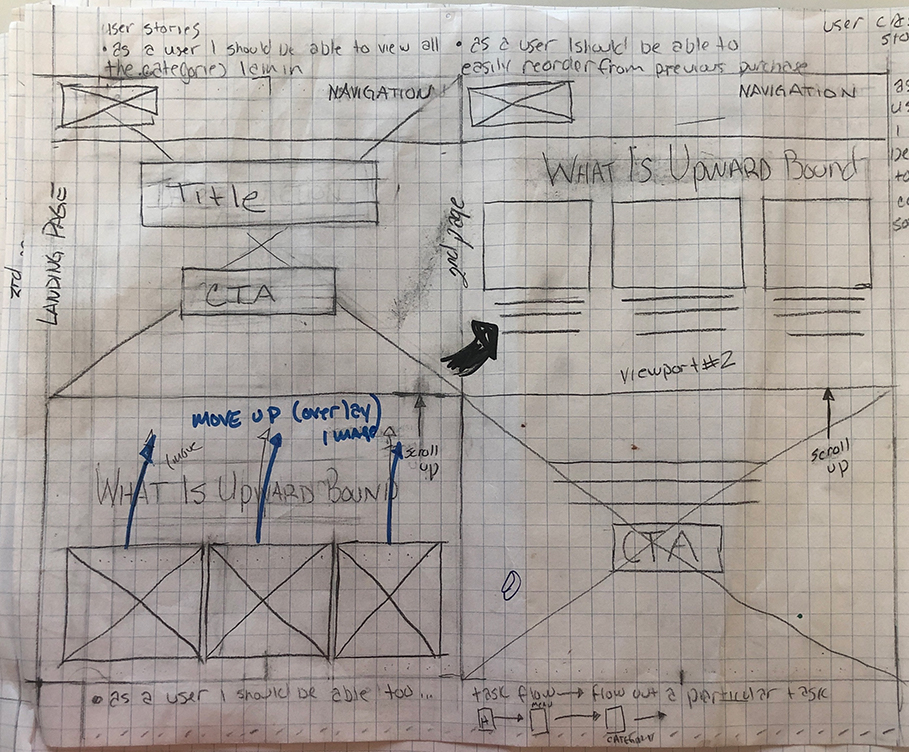 User stories
• as a user I should be able to view all
the categories I em in
• as a user I should be able to
easily reorder from previous purchase
user
NAVIGATION
Title
CTA
LANDING PAGE
2nd page
NAVIGATION
WHAT IS UPWARD BOUND
viewport #2
MOVE UP (overlay)
IMAGE
scroll
up
WHAT IS UPWARD BOUND
scroll
up
CTA
• as a user I should be able too...
task flow → flow out a particular task
H
MENU
CATEGORY